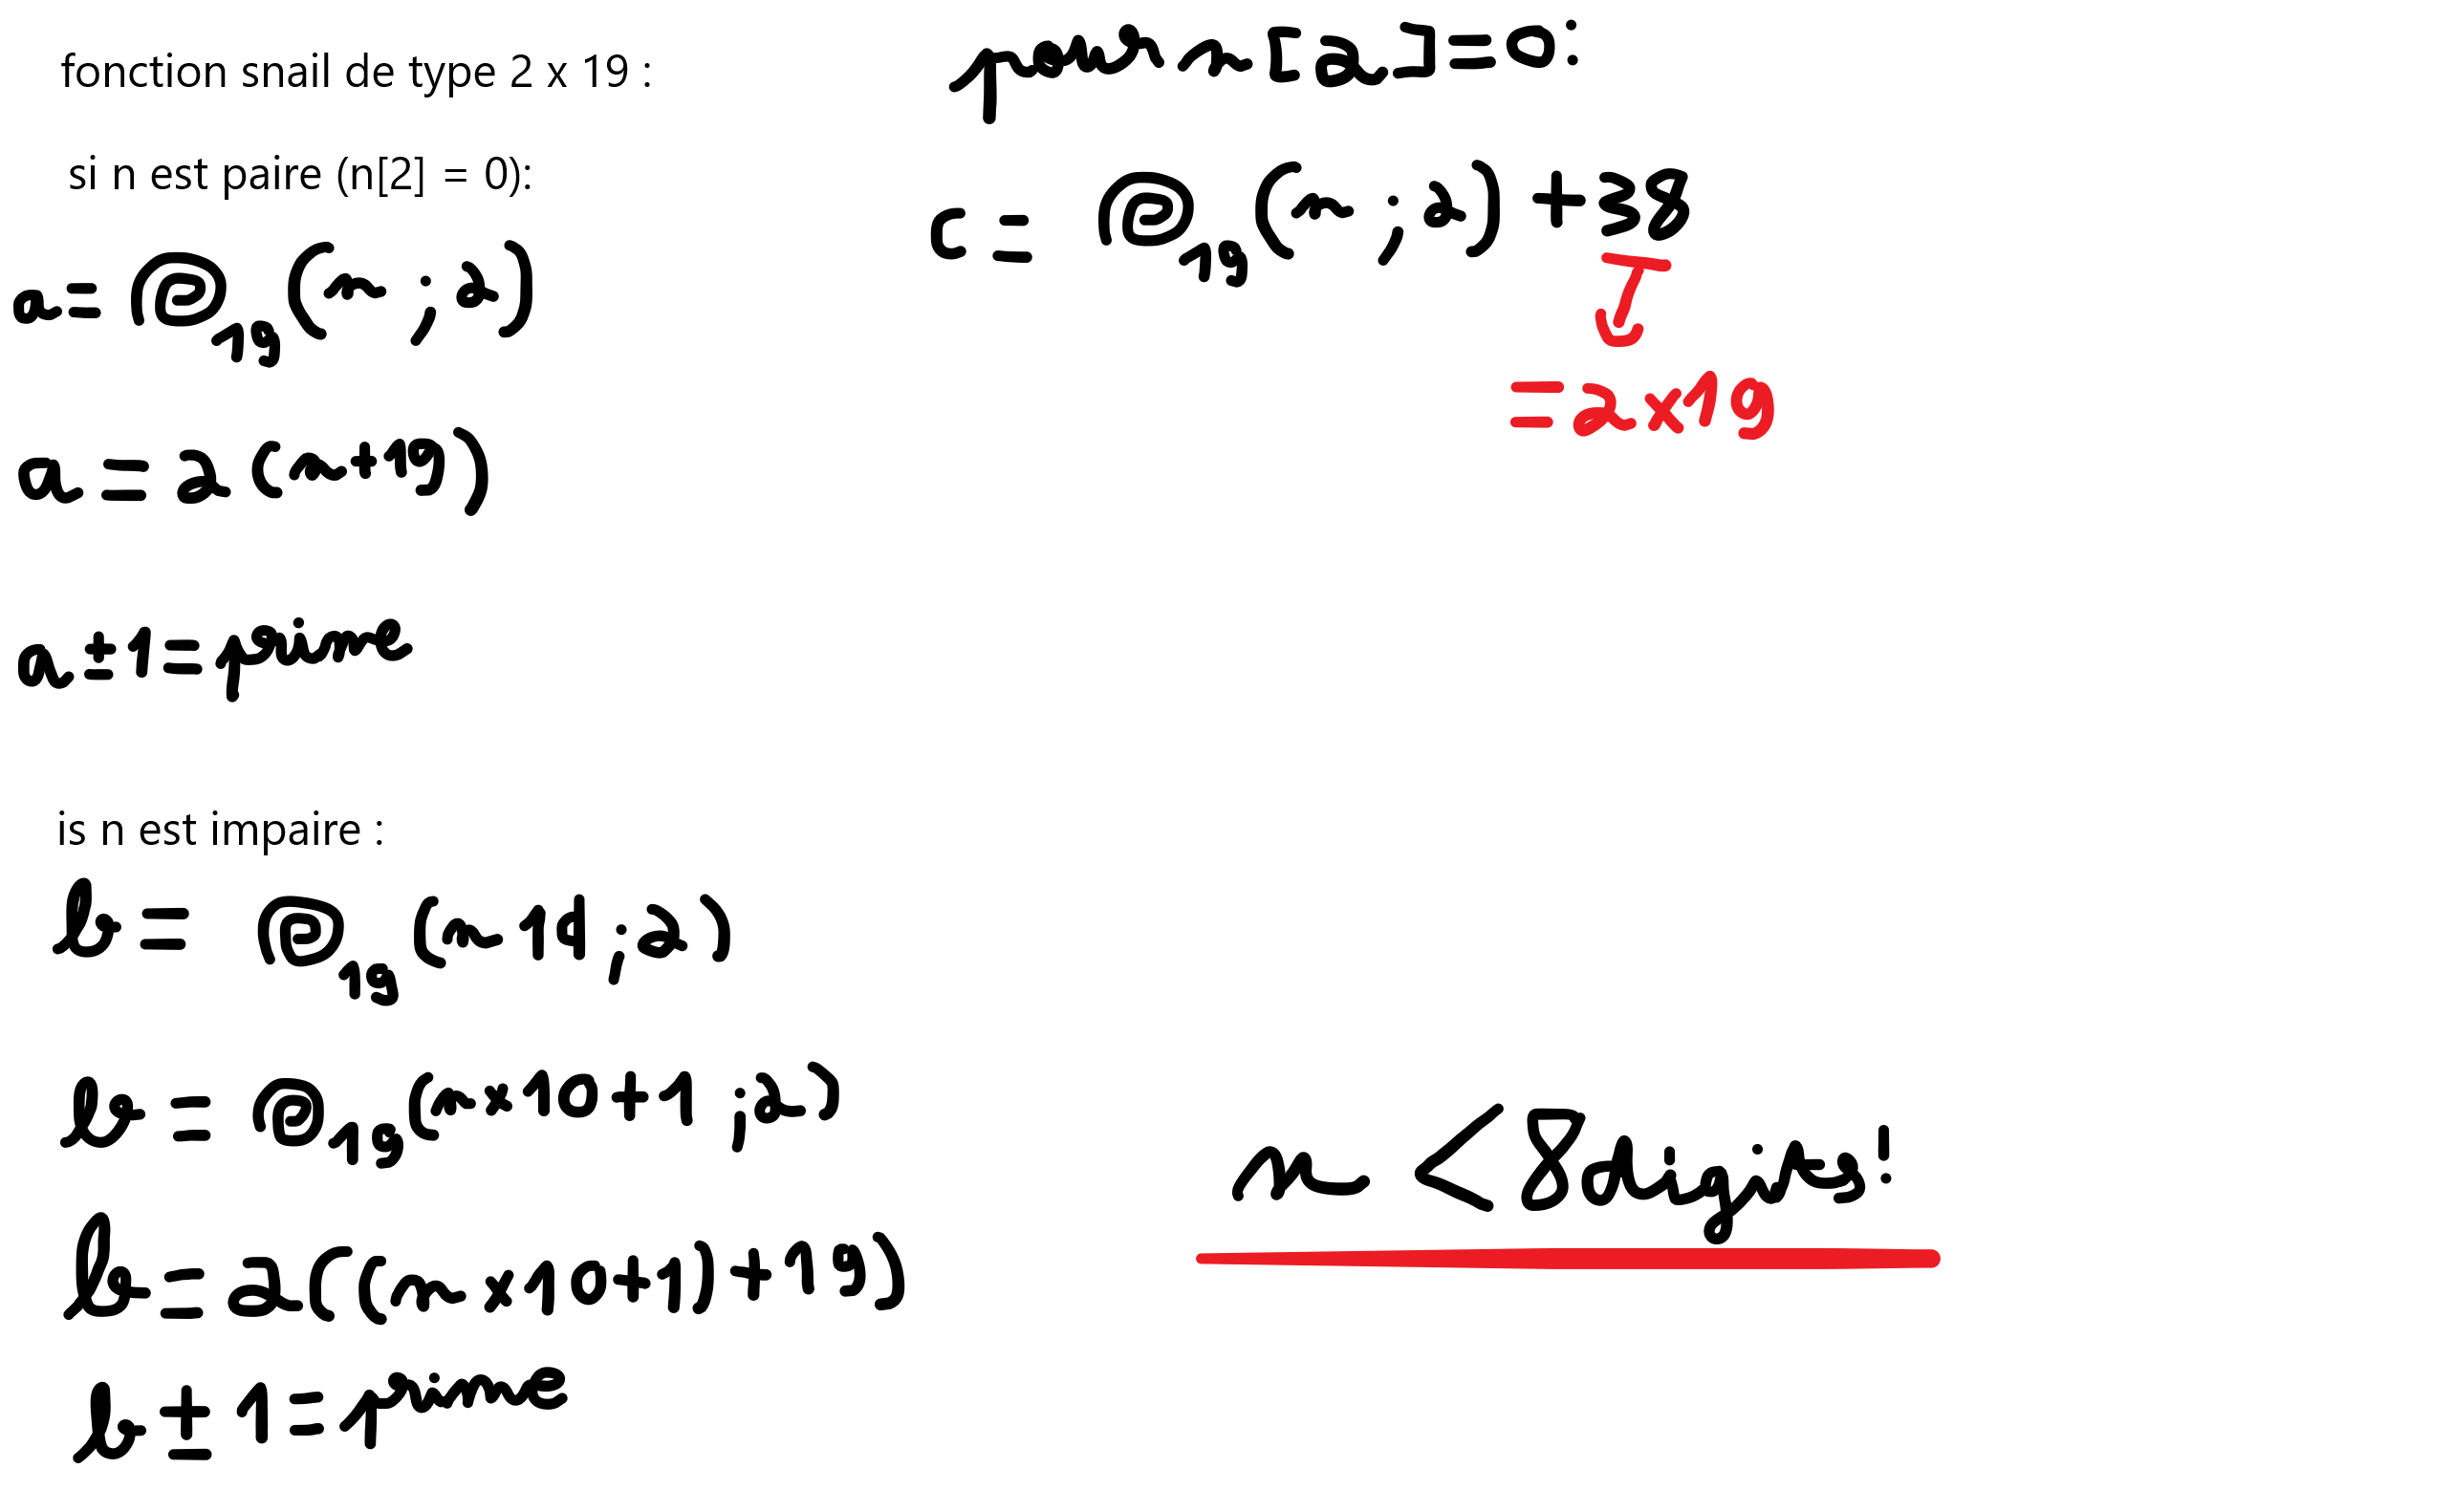 fonction snail de type 2 x 19 :
si n est paire (n[2] = 0):
a = @19(n ; 2)
a = 2(n+19)
a ± 1 = prime
is n est impaire :
b = @19(n 1 ; 2)
b = @19(n×10+1 ; 2)
b = 2((n×10+1)+19)
b ± 1 = prime
pour n[2]=0:
c = @19(n ; 2) +38
=2×19
n < 8 digits!